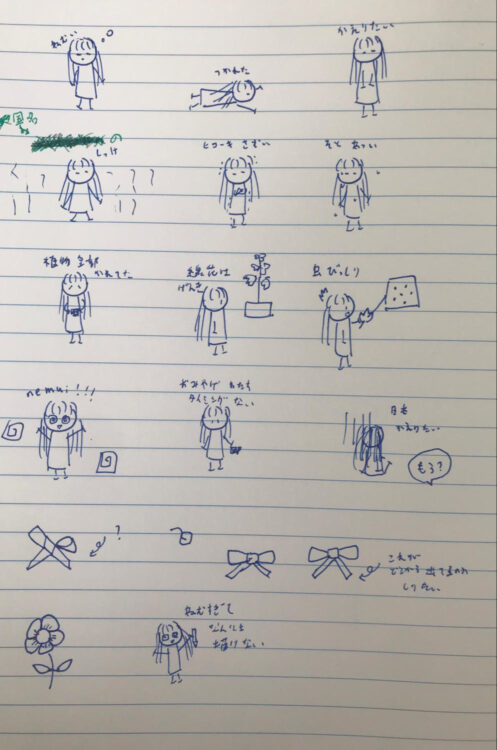 ねむい
かえりたい
つかれた
国名
の
しっけ
ヒコーキ さむい
そと あつい
植物 全部
かれてた
綿花は
げんき
虫 びっしり
nemui!!!
おみやげ わたす
タイミング ない
日本
かえりたい
もう?
?
これが
どこから 出てるのか
しりたい
ねむすぎて
なんにも
描けない